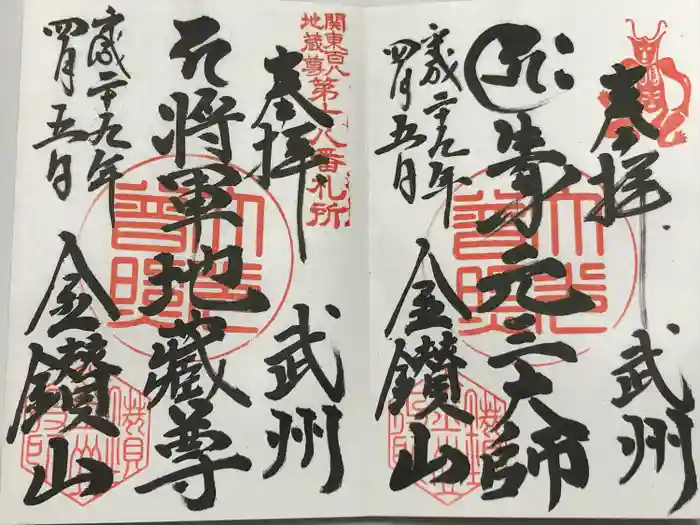 奉拝
武州
元三大師
金鑚山
平成二十九年
四月五日
大光
普照
関東百八
地蔵尊
第十八番札所
奉拝
武州
将軍地蔵尊
金鑚山
平成二十九年
四月五日
大光
普照